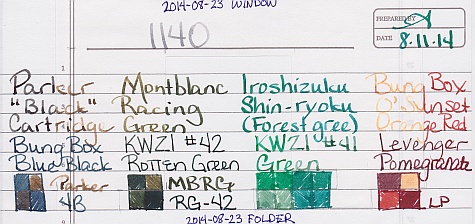 2014-08-23 WINDOW
1140
PREPARED BY
DATE 8-11-14
Parker Montblanc Iroshizuku Bung Box
"Black" Racing Shin-ryoku O'Sunset
Cartridge Green (Forest gree) Orange Red
Bung Box KWZI #42 KWZI #41 Levenger
Blue Black Rotten Green Green Pomegranate
Parker MBRG
4B RG-42 LP
2014-08-23 FOLDER